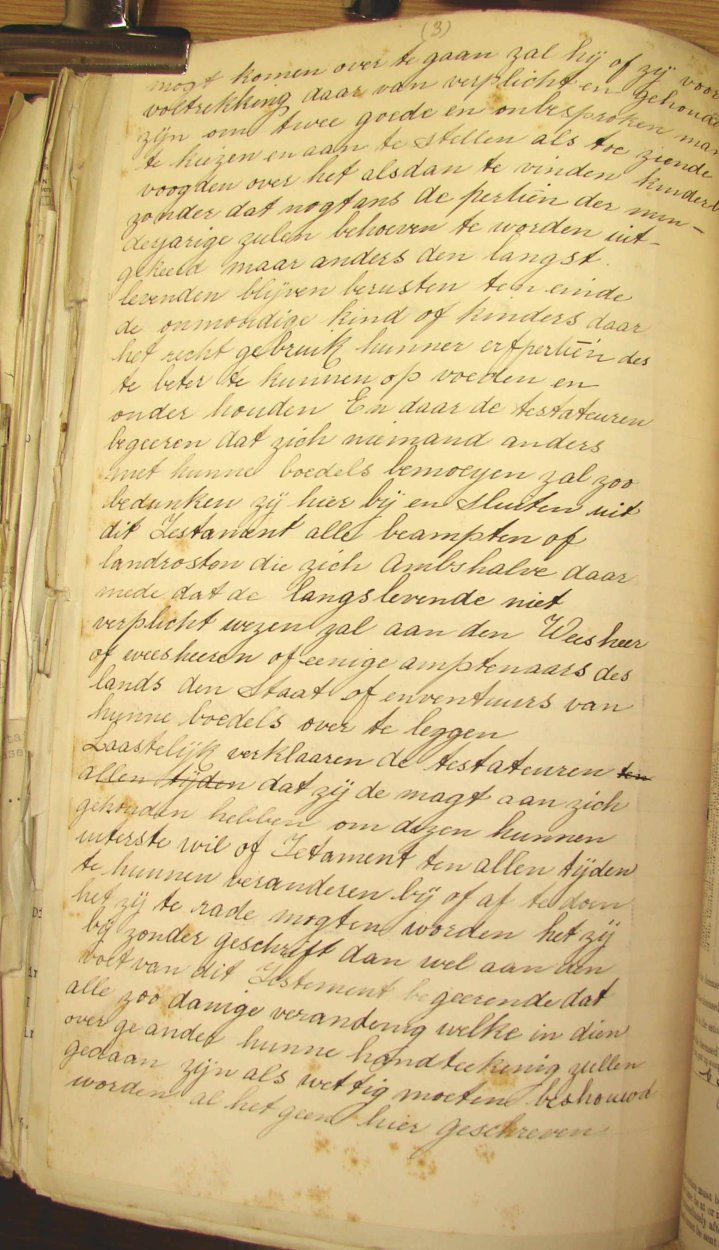 (3)
mogt komen over te gaan zal hij of zij voor
voltrekking daar van verplicht en gehouden
zijn om twee goede en onbesproken man
te kiezen en aan te stellen als toe ziende
voogden over het alsdan te vinden kinder
zonder dat nogtans de pertien der min-
derjarige zulen behoeven te worden uit-
gekeerd maar anders den langst
levenden blijven berusten ten einde
de onmondige kind of kinders daar
het recht gebruik hunner erfpertien des
te beter te kunnen op voeden en
onder houden En daar de testateuren
begeeren dat zich niemand anders
met hunne boedels bemoeyen zal zoo
bedunken zij hier bij en sluiten uit
dit Testament alle beampten of
landrosten die zich Ambshalve daar
mede dat de langslevende niet
verplicht wezen zal aan den Wees heer
of weesheeren of eenige amptenaars des
lands den Staat of enventuurs van
hunne boedels over te leggen
Laastelijk verklaaren de testateuren ten
allen tijden dat zij de magt aan zich
gehouden hebben om dezen hunnen
uiterste wil of Tetament ten allen tijden
te kunnen veranderen bij of af te doen
het zij te rade mogten worden het zij
bij zonder geschrift dan wel aan den
voet van dit Testement begeerende dat
alle zoo danige verandenig welke in dien
over ge andet hunne handteekenig zullen
gedaan zijn als wettig moeten beshouwd
worden al het geen hier geschreven